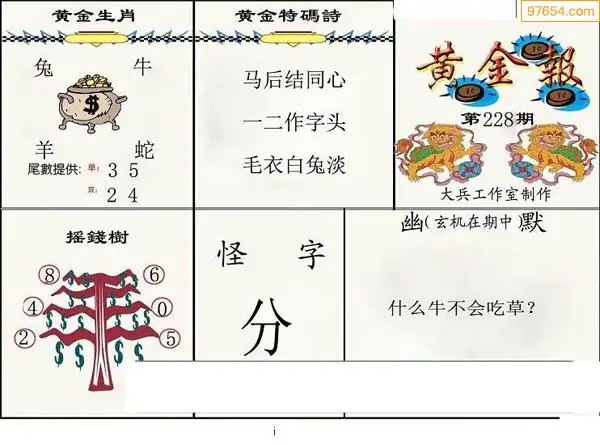 97654.com
黄金生肖
兔 牛
羊 蛇
尾數提供: 单: 3 5
双: 2 4
黄金特碼詩
马后结同心
一二作字头
毛衣白兔淡
黄金報
第228期
大兵工作室制作
摇錢樹
8 6
4 0
2 5
怪 字
分
幽(玄机在期中)默
什么牛不会吃草?
i